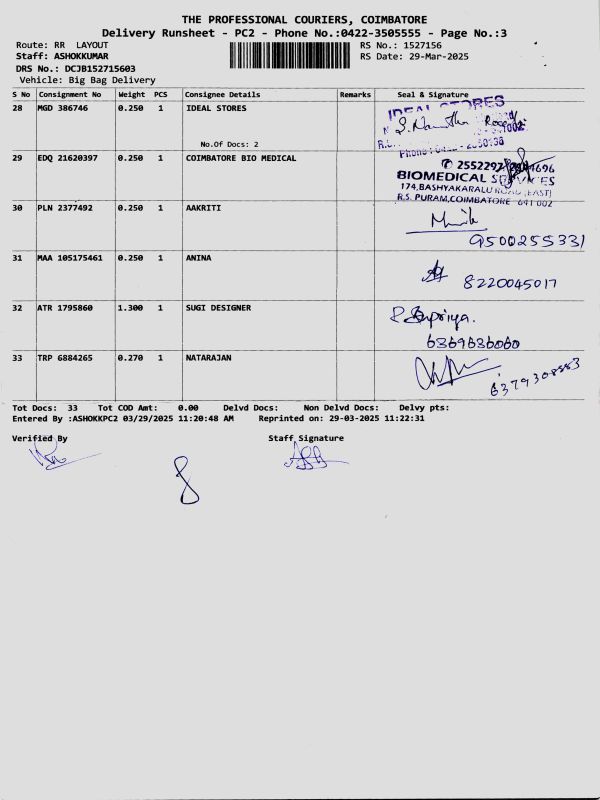 THE PROFESSIONAL COURIERS, COIMBATORE
Delivery Runsheet - PC2 - Phone No.:0422-3505555 - Page No.:3
Route: RR LAYOUT RS No.: 1527156
Staff: ASHOKKUMAR RS Date: 29-Mar-2025
DRS No.: DCJB152715603
Vehicle: Big Bag Delivery
S No Consignment No Weight PCS Consignee Details Remarks Seal & Signature
28 MGD 386746 0.250 1 IDEAL STORES
IDEAL STORES
No.Of Docs: 2
29 EDQ 21620397 0.250 1 COIMBATORE BIO MEDICAL
BIOMEDICAL SERVICES
174,BASHYAKARALU ROAD (EAST)
R.S. PURAM,COIMBATORE 641 002
30 PLN 2377492 0.250 1 AAKRITI
9500255331
31 MAA 105175461 0.250 1 ANINA
8220045017
32 ATR 1795860 1.300 1 SUGI DESIGNER
6369636060
33 TRP 6884265 0.270 1 NATARAJAN
Tot Docs: 33 Tot COD Amt: 0.00 Delvd Docs: Non Delvd Docs: Delvy pts:
Entered By :ASHOKKPC2 03/29/2025 11:20:48 AM Reprinted on: 29-03-2025 11:22:31
Verified By Staff Signature